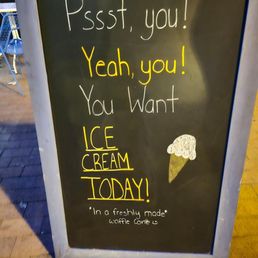 Pssst, you!
Yeah, you!
You Want
ICE
CREAM
TODAY!
"In a freshly made"
waffle cone